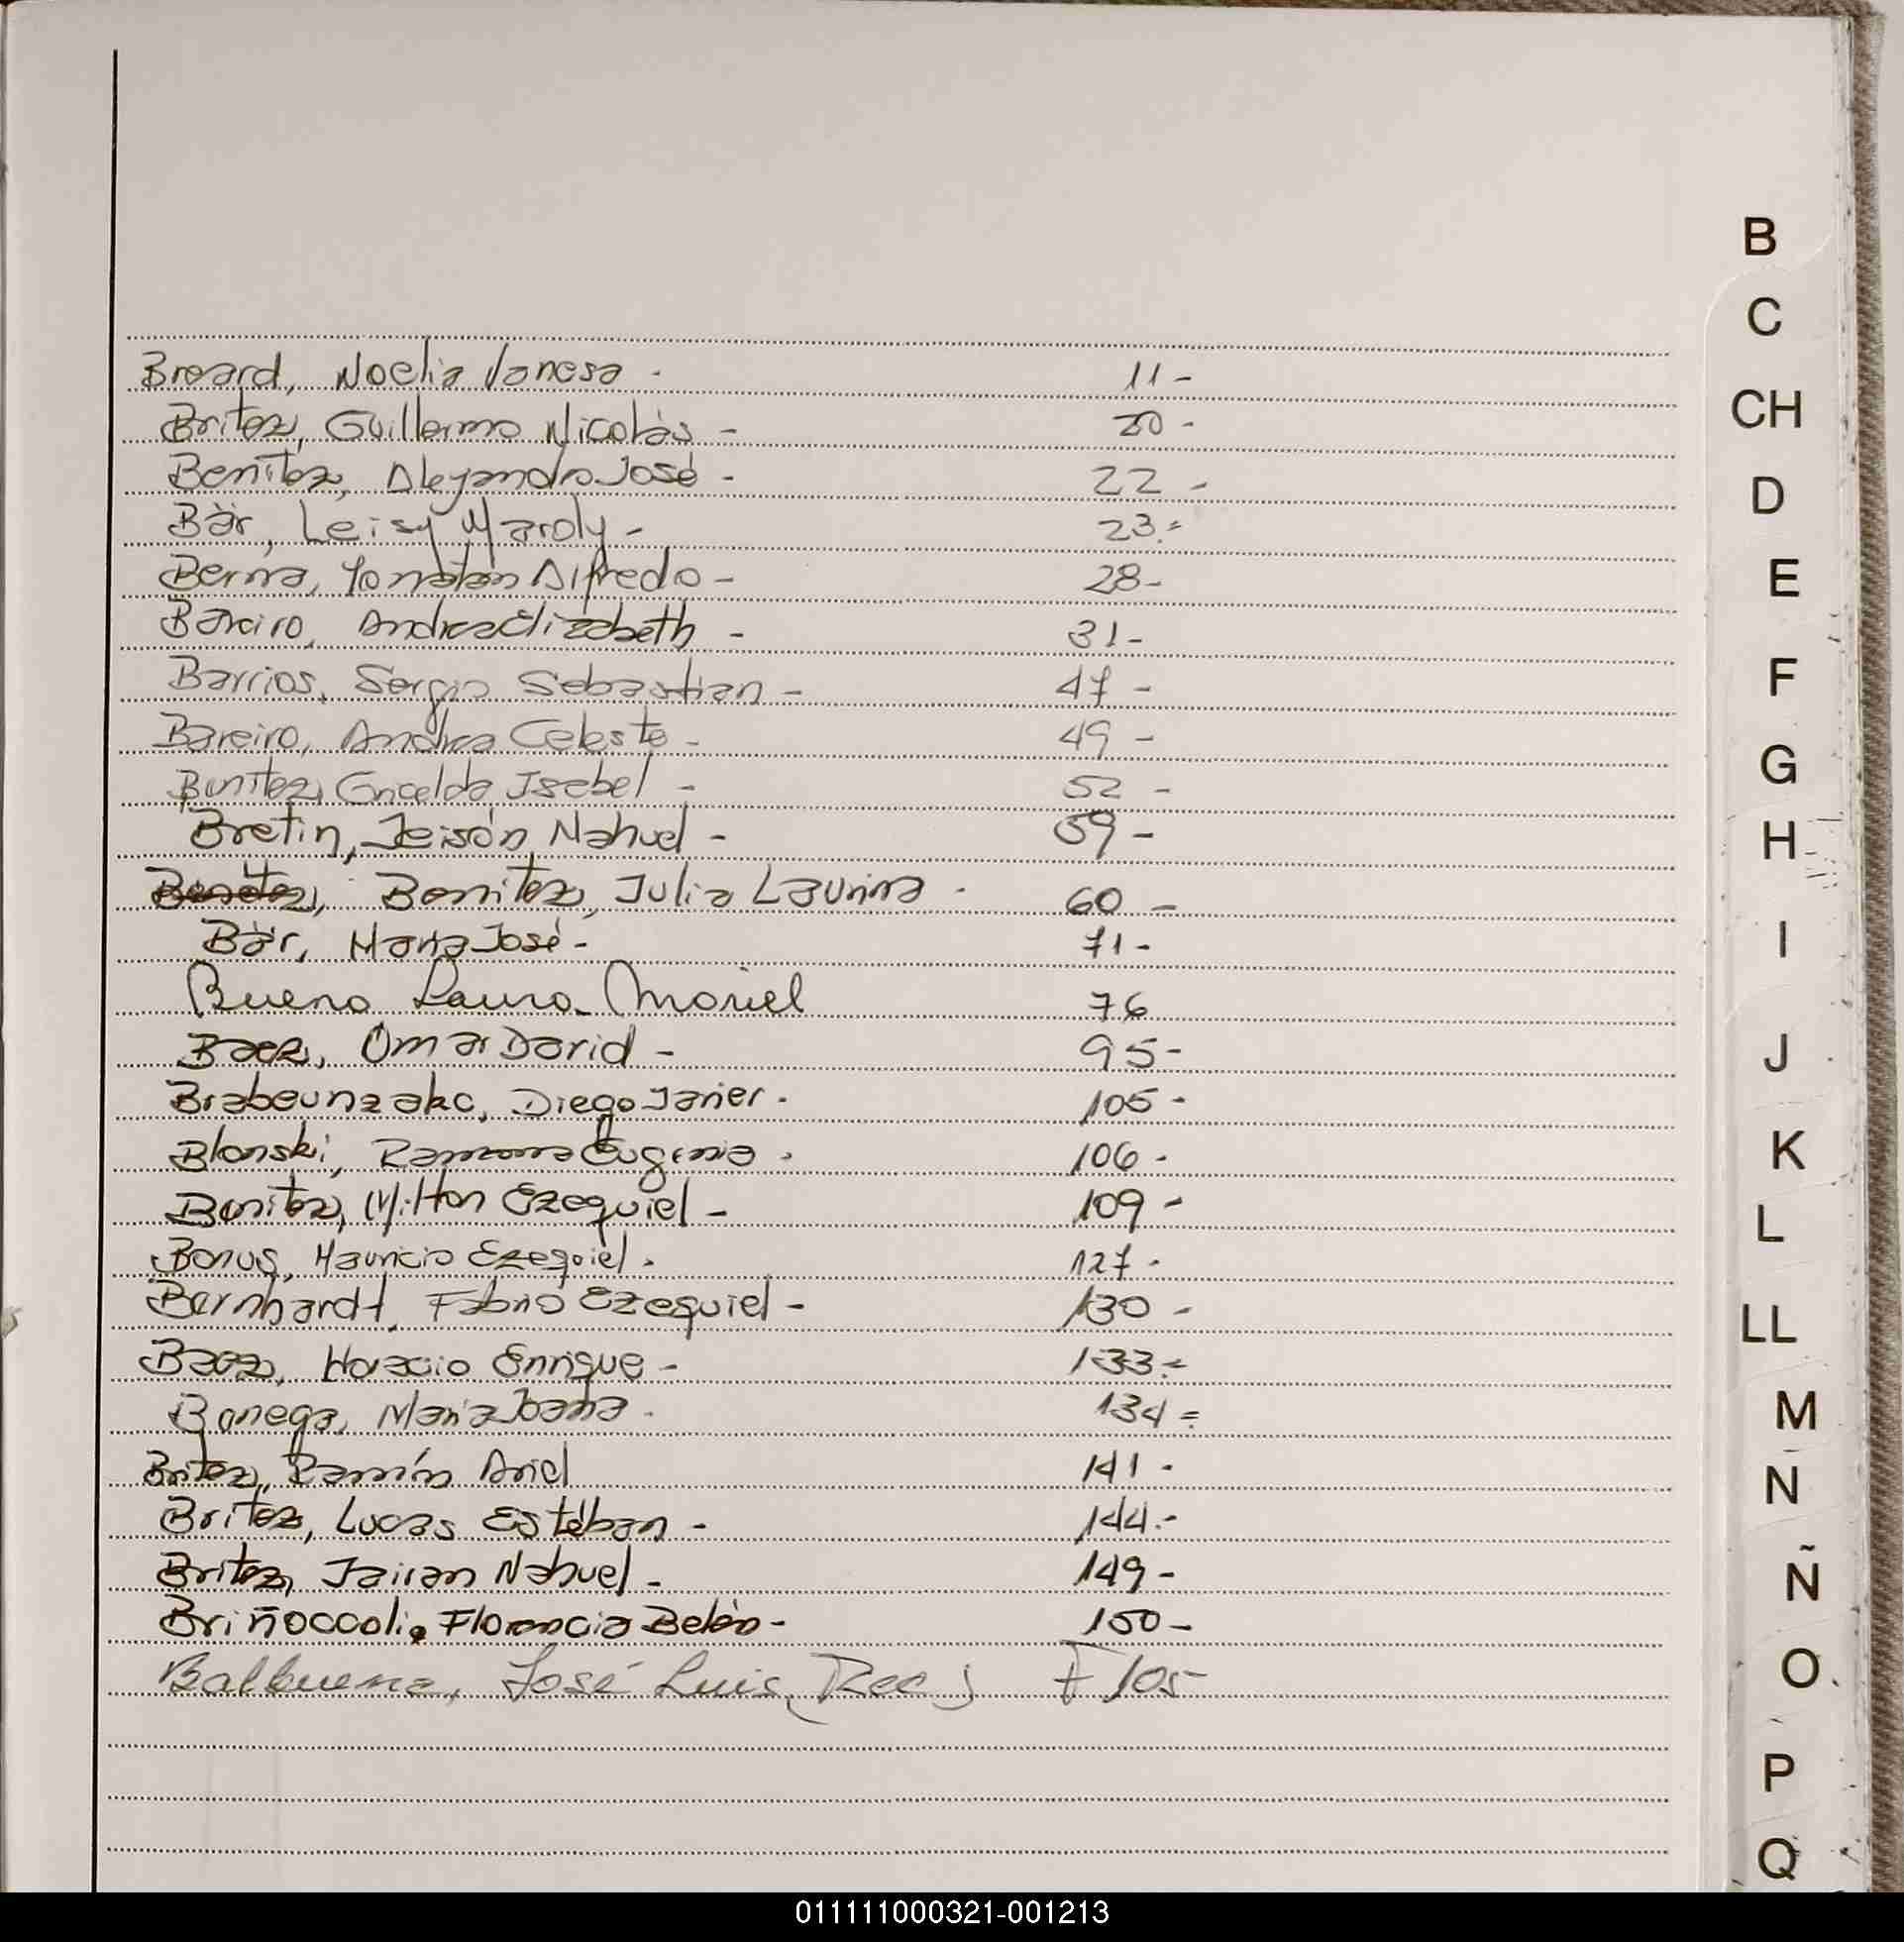 B
C
CH
D
E
F
G
H
I
J
K
L
LL
M
N
Ñ
O
P
Q
Breard, Noelia Vanesa - 11-
Britez, Guillermo Nicolás - 20-
Benitez, Alejandro José - 22-
Bär, Leisy Maroly - 23.=
Berna, Yonatan Alfredo - 28-
Bareiro, Andrea Elizabeth - 31-
Barrios, Sergio Sebastian - 47-
Bareiro, Andrea Celeste - 49-
Benitez, Gricelda Isabel - 52-
Bretin, Jeisón Nahuel - 59-
Benitez, Julia Laurina - 60-
Bär, Maria José - 71-
Bueno Laura Mariel 76
Baez, Omar David - 95-
Diego Javier - 105-
Blonski, Ramona Eugenia - 106-
Benitez, Milton Ezequiel - 109-
Bonus, Mauricio Ezequiel - 127-
Bernhardt, Fabio Ezequiel - 130-
Baez, Horacio Enrique - 133.=
Banega, Maria Joana - 134=
Britez, Ramón Ariel 141-
Britez, Lucas Estéban - 144.-
Britez, Jairan Nahuel - 149-
Briñoccoli, Florencia Belén - 150-
Balbuena, José Luis (Rec) F 105-
011111000321-001213